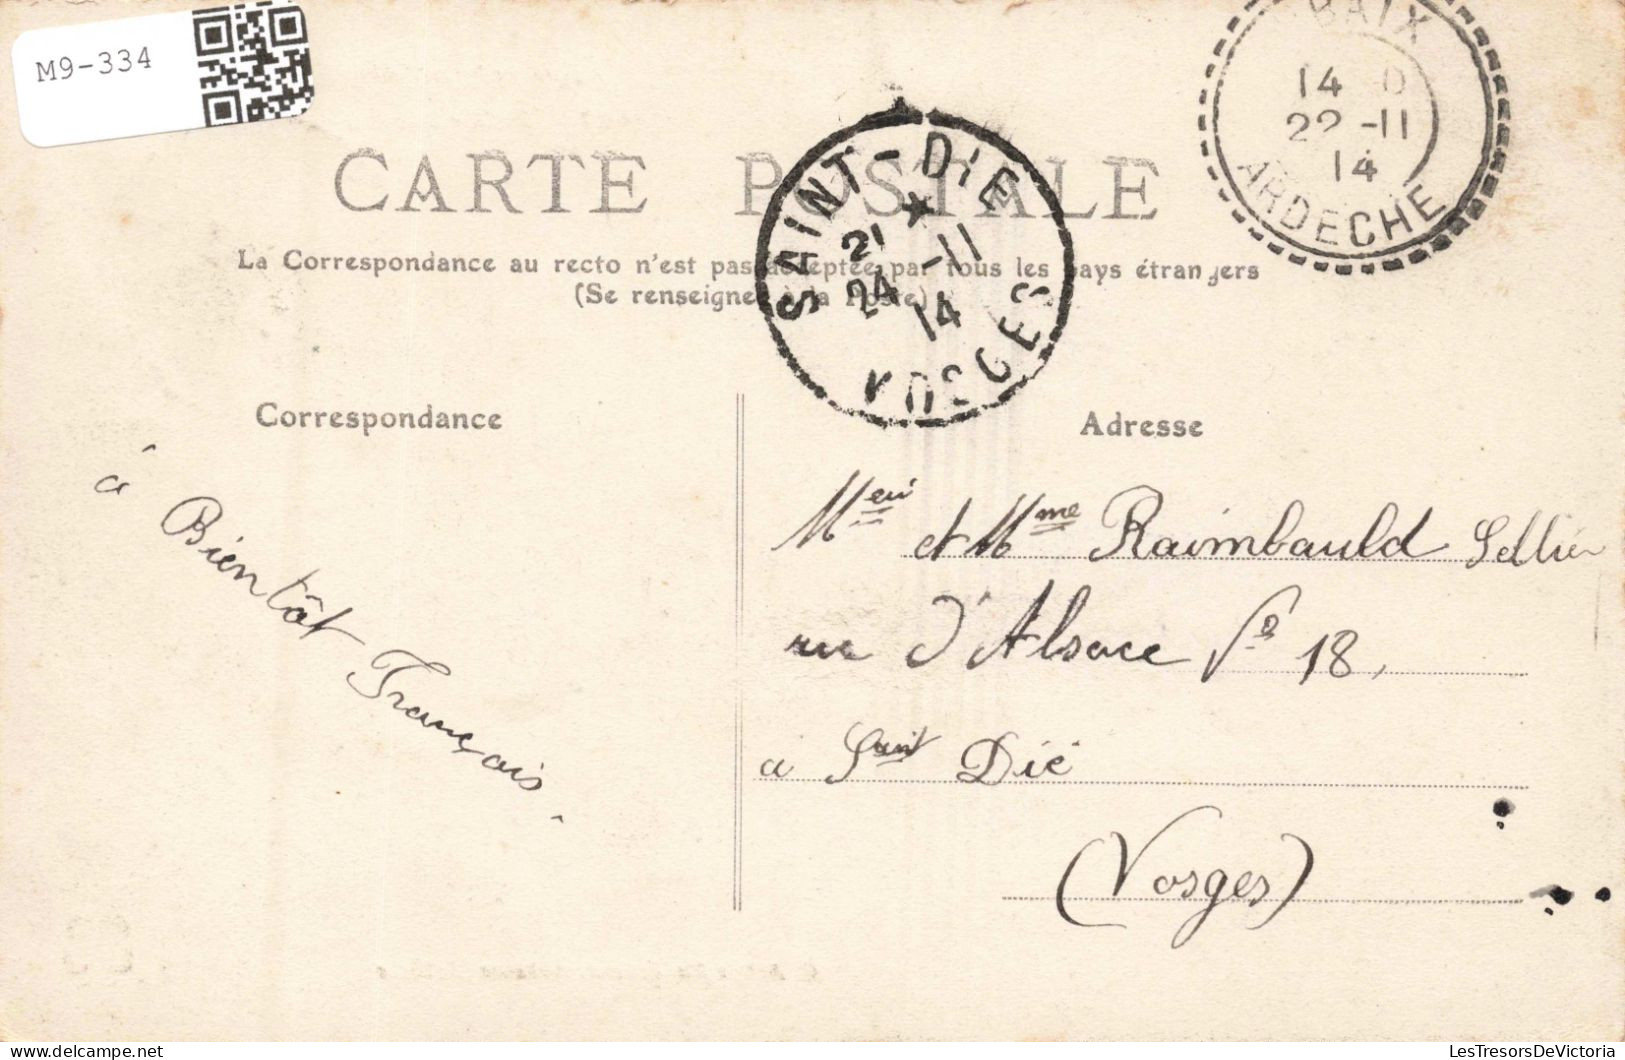 M9-334
BAIX
14
22 -11
14
ARDECHE
CARTE POSTALE
SAINT-DIE
21
24 -11
14
VOSGES
La Correspondance au recto n'est pas acceptée par tous les pays étrangers
(Se renseigner à la Poste)
Correspondance
Adresse
à Bientôt François
et Mme Raimbauld Sellier
rue d'Alsace No 18,
à Saint Dié
(Vosges)
LesTresorsDeVictoria